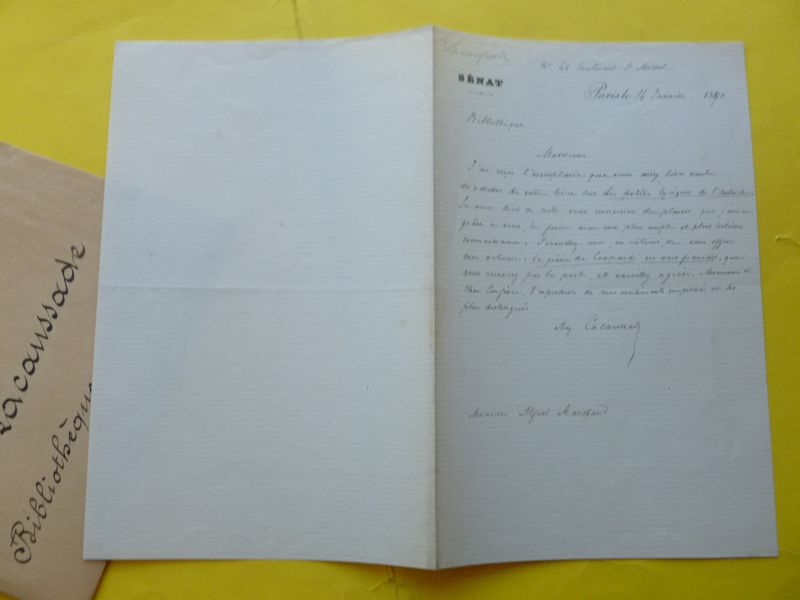 Lacaussade
Bibliothèque
Lacaussade
64 boulevard St Michel
SÉNAT
Paris le 24 Janvier 1890
Bibliothèque
Monsieur,
J'ai reçu l'exemplaire que vous avez bien voulu
m'adresser de votre livre sur Les poètes lyriques de l'Autriche.
Je veux tout de suite vous remercier du plaisir que j'aurai,
grâce à vous, à faire une plus ample et plus intime
connaissance. Permettez-moi, en retour, de vous offrir
mon volume: les poésies de Leopardi en vers français, que
vous recevrez par la poste, et veuillez agréer, Monsieur et
cher Confrère, l'expression de mes sentiments empressés et les
plus distingués
Aug Lacaussade
Monsieur Alfred Marchand